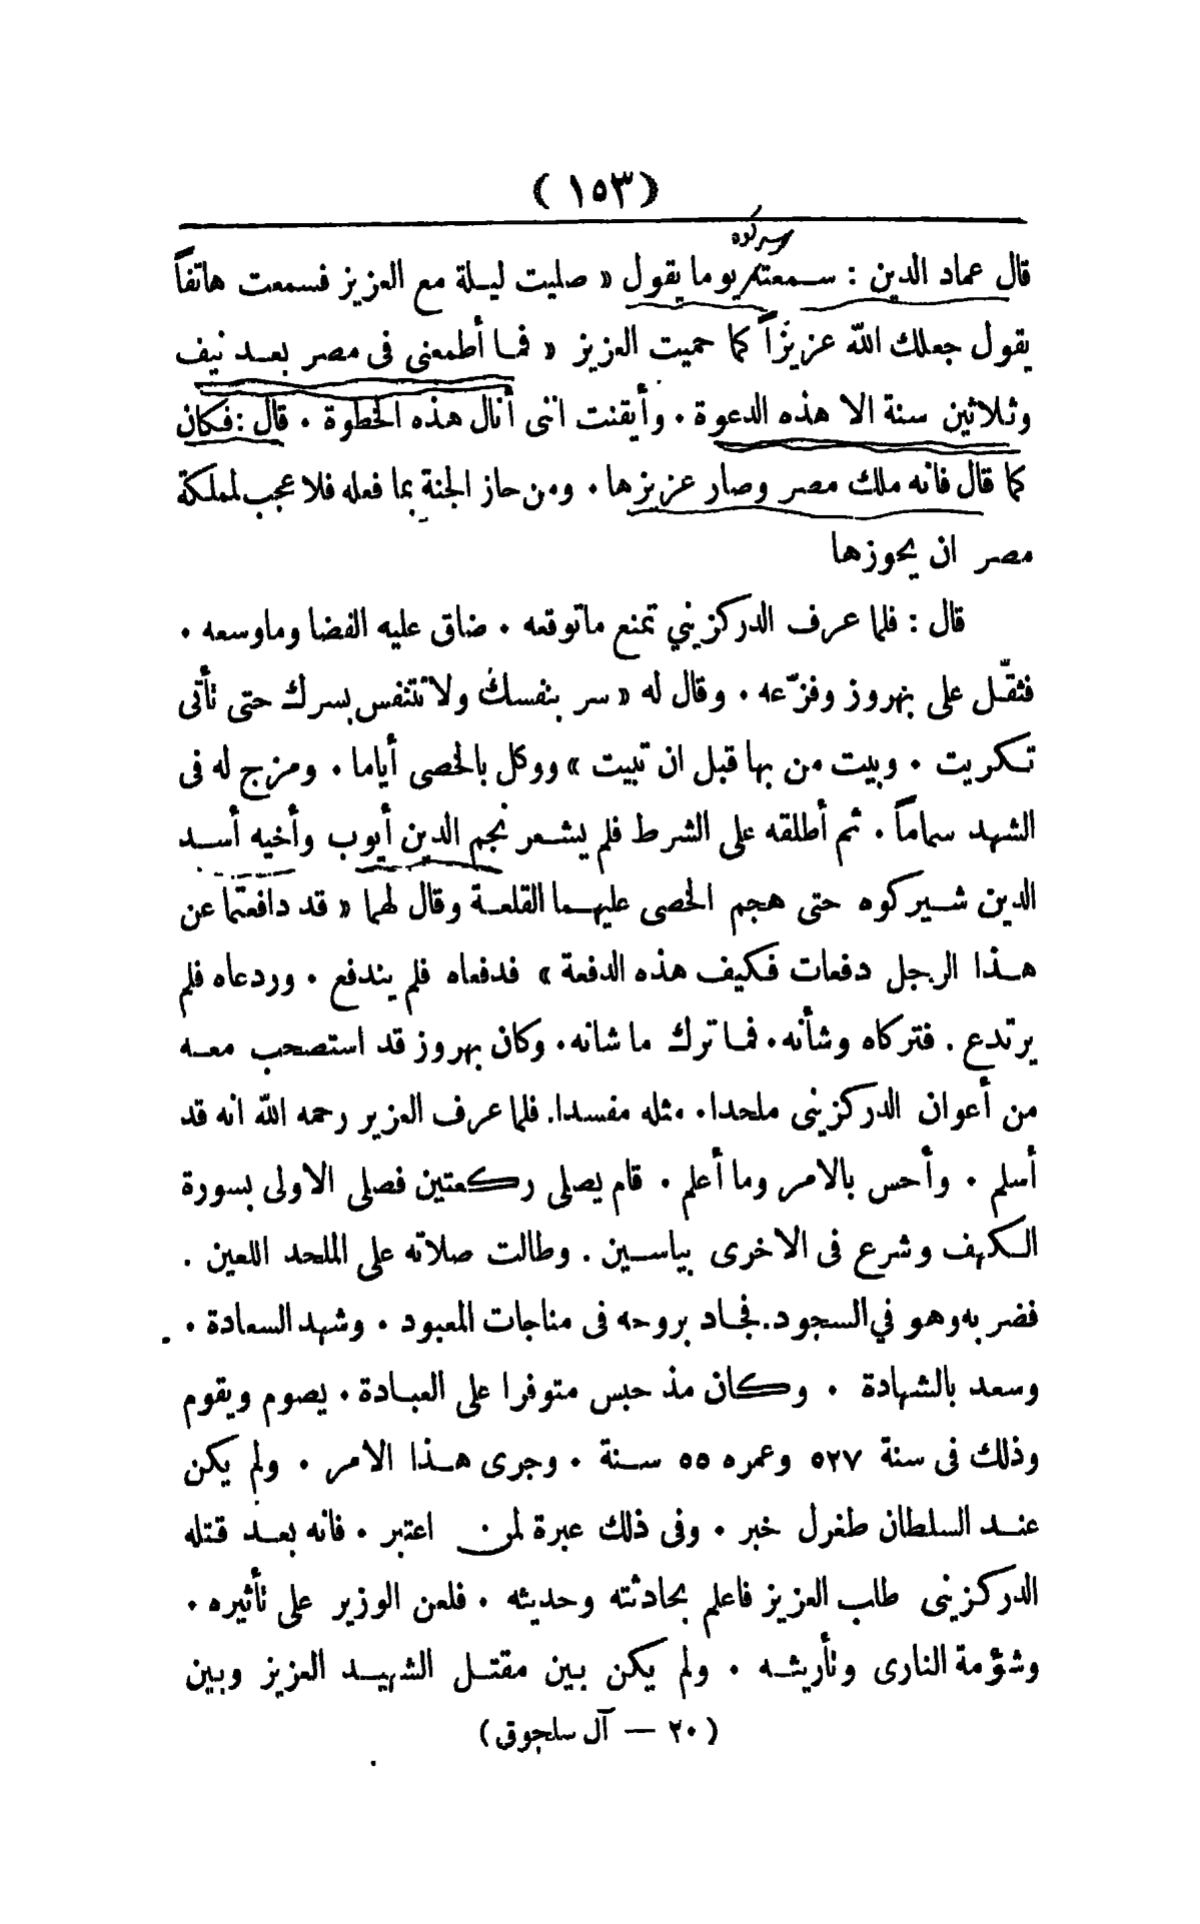 (١٥٣)
شيركوه
قال عماد الدين : سمعته يوما يقول « صليت ليلة مع العزيز فسمعت هاتفاً
يقول جعلك الله عزيزاً كما حميت العزيز « فما أطمعنى فى مصر بعد نيف
وثلاثين سنة الا هذه الدعوة • وأيقنت اننى أنال هذه الخطوة • قال : فكان
كما قال فانه ملك مصر وصار عزيزها • ومن حاز الجنة بما فعله فلا عجب لمملكة
مصر ان يحوزها
قال : فلما عرف الدركزيني تمنع ماتوقعه • ضاق عليه الفضا وماوسعه •
فثقّل على بهروز وفزّعه • وقال له « سر بنفسك ولا تتنفس بسرك حتى تأتى
تكريت • وبيت من بها قبل ان تبيت » ووكل بالخصى أياما • ومزج له فى
الشهد سماماً • ثم أطلقه على الشرط فلم يشعر نجم الدين أيوب وأخيه أسد
الدين شيركوه حتى هجم الخصى عليهما القلعة وقال لهما « قد دافعتما عن
هذا الرجل دفعات فكيف هذه الدفعة » فدفعاه فلم يندفع • وردعاه فلم
يرتدع . فتركاه وشأنه • فما ترك ما شانه • وكان بهروز قد استصحب معه
من أعوان الدركزينى ملحدا • مثله مفسدا . فلما عرف العزير رحمه الله انه قد
أسلم • وأحس بالامر وما أعلم • قام يصلى ركعتين فصلى الاولى بسورة
الكهف وشرع فى الاخرى بياسين . وطالت صلاته على الملحد اللعين .
فضربه وهو في السجود . فجاد بروحه فى مناجات المعبود • وشهد السعادة •
وسعد بالشهادة • وكان مذ حبس متوفرا على العبادة • يصوم ويقوم
وذلك فى سنة ٥٢٧ وعمره ٥٥ سنة • وجرى هذا الامر • ولم يكن
عند السلطان طغرل خبر • وفى ذلك عبرة لمن اعتبر • فانه بعد قتله
الدركزينى طاب العزيز فاعلم بحادثته وحديثه • فلعن الوزير على تأثيره •
وشؤمة النارى وتأريشه • ولم يكن بين مقتل الشهيد العزيز وبين
(٢٠ — آل سلجوق)